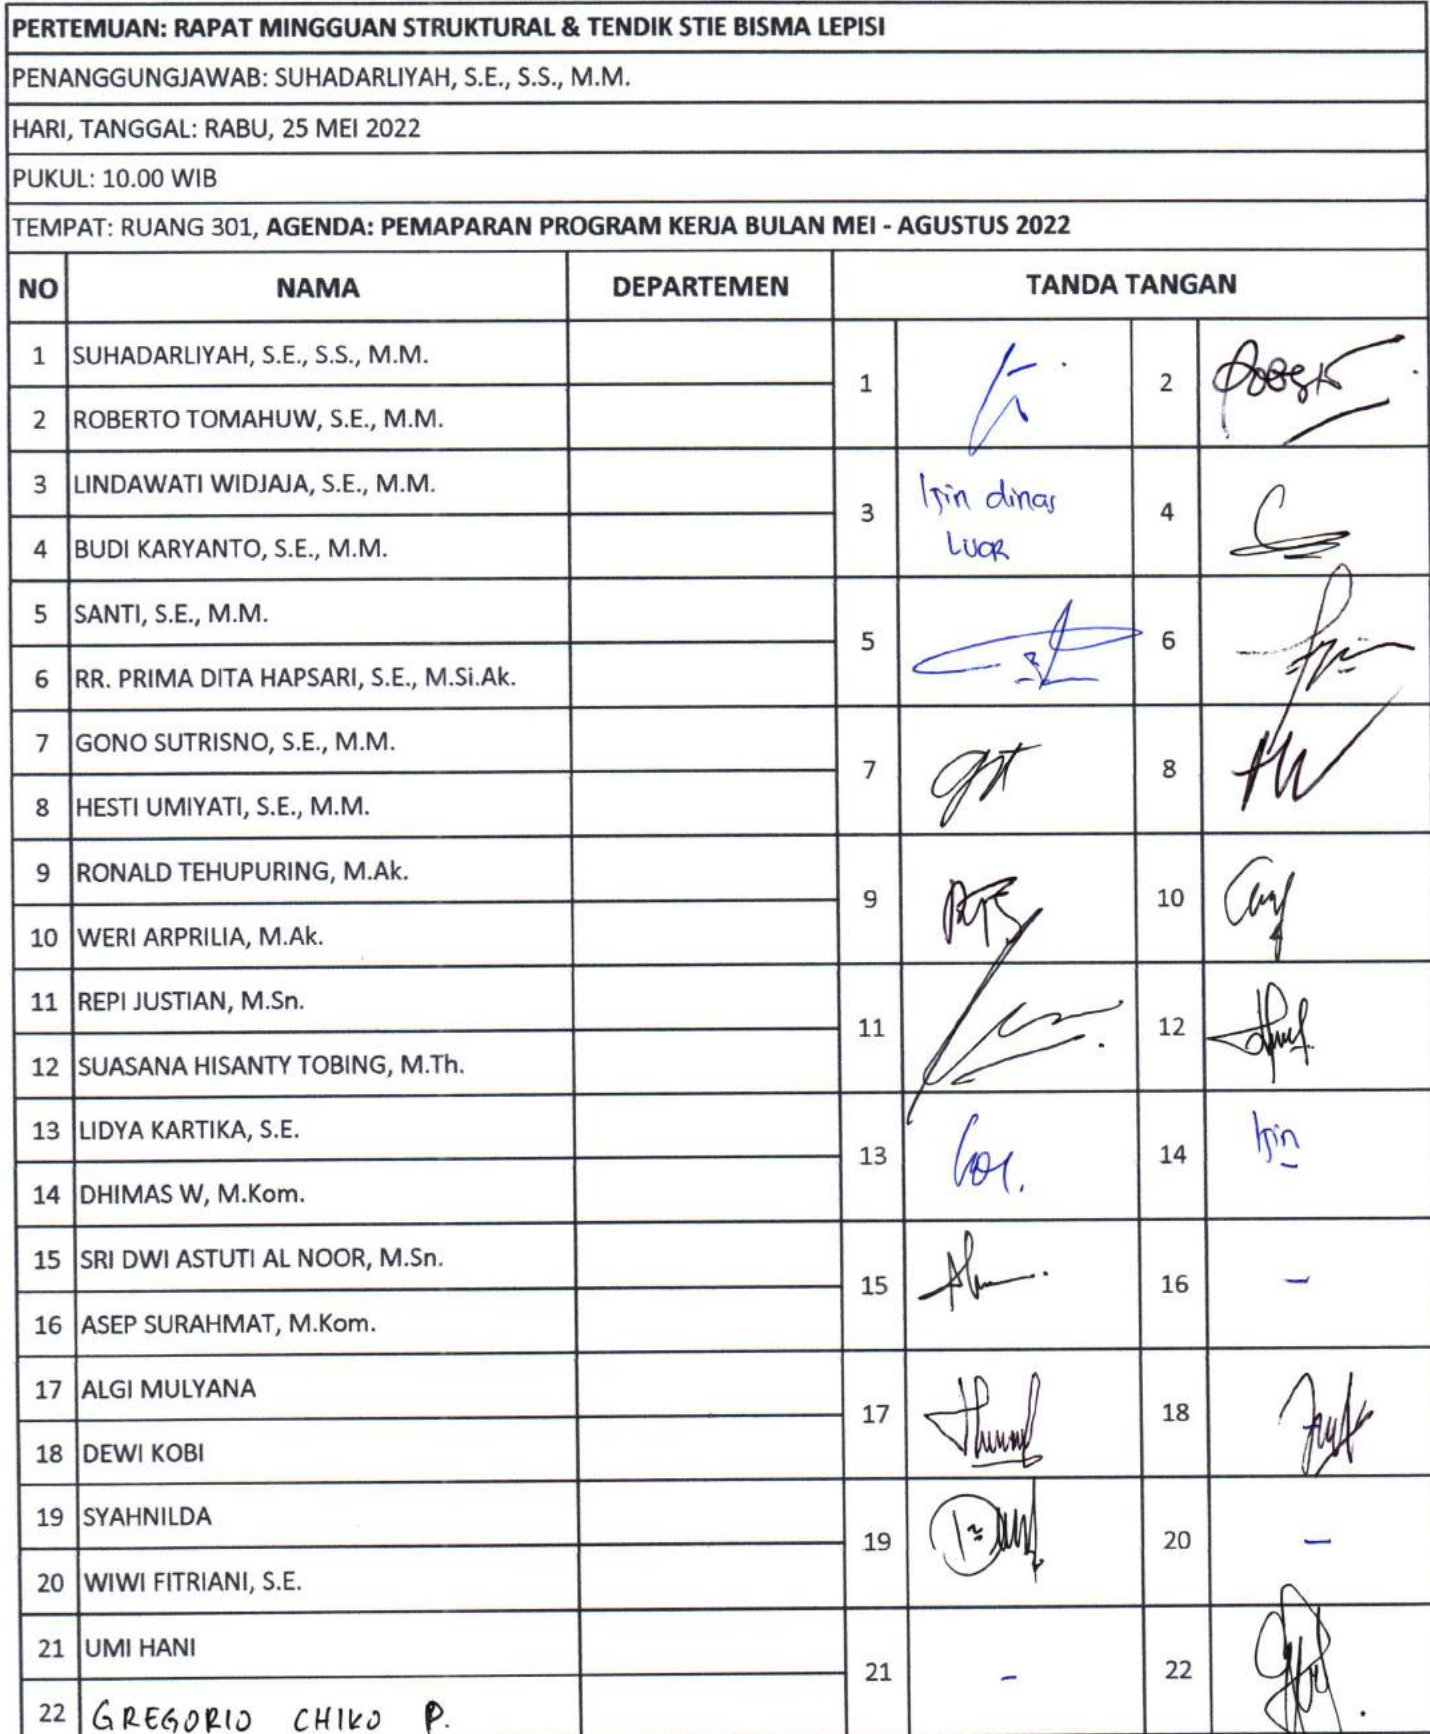 PERTEMUAN: RAPAT MINGGUAN STRUKTURAL & TENDIK STIE BISMA LEPISI
PENANGGUNGJAWAB: SUHADARLIYAH, S.E., S.S., M.M.
HARI, TANGGAL: RABU, 25 MEI 2022
PUKUL: 10.00 WIB
TEMPAT: RUANG 301, AGENDA: PEMAPARAN PROGRAM KERJA BULAN MEI - AGUSTUS 2022
NO NAMA DEPARTEMEN TANDA TANGAN
1 SUHADARLIYAH, S.E., S.S., M.M.
1 2
2 ROBERTO TOMAHUW, S.E., M.M.
3 LINDAWATI WIDJAJA, S.E., M.M.
3 Izin dinas 4
Luar
4 BUDI KARYANTO, S.E., M.M.
5 SANTI, S.E., M.M.
5 6
6 RR. PRIMA DITA HAPSARI, S.E., M.Si.Ak.
7 GONO SUTRISNO, S.E., M.M.
7 8
8 HESTI UMIYATI, S.E., M.M.
9 RONALD TEHUPURING, M.Ak.
9 10
10 WERI ARPRILIA, M.Ak.
11 REPI JUSTIAN, M.Sn.
11 12
12 SUASANA HISANTY TOBING, M.Th.
13 LIDYA KARTIKA, S.E.
13 14 Izin
14 DHIMAS W, M.Kom.
15 SRI DWI ASTUTI AL NOOR, M.Sn.
15 16 -
16 ASEP SURAHMAT, M.Kom.
17 ALGI MULYANA
17 18
18 DEWI KOBI
19 SYAHNILDA
19 20 -
20 WIWI FITRIANI, S.E.
21 UMI HANI
21 - 22
22 GREGORIO CHIKO P.